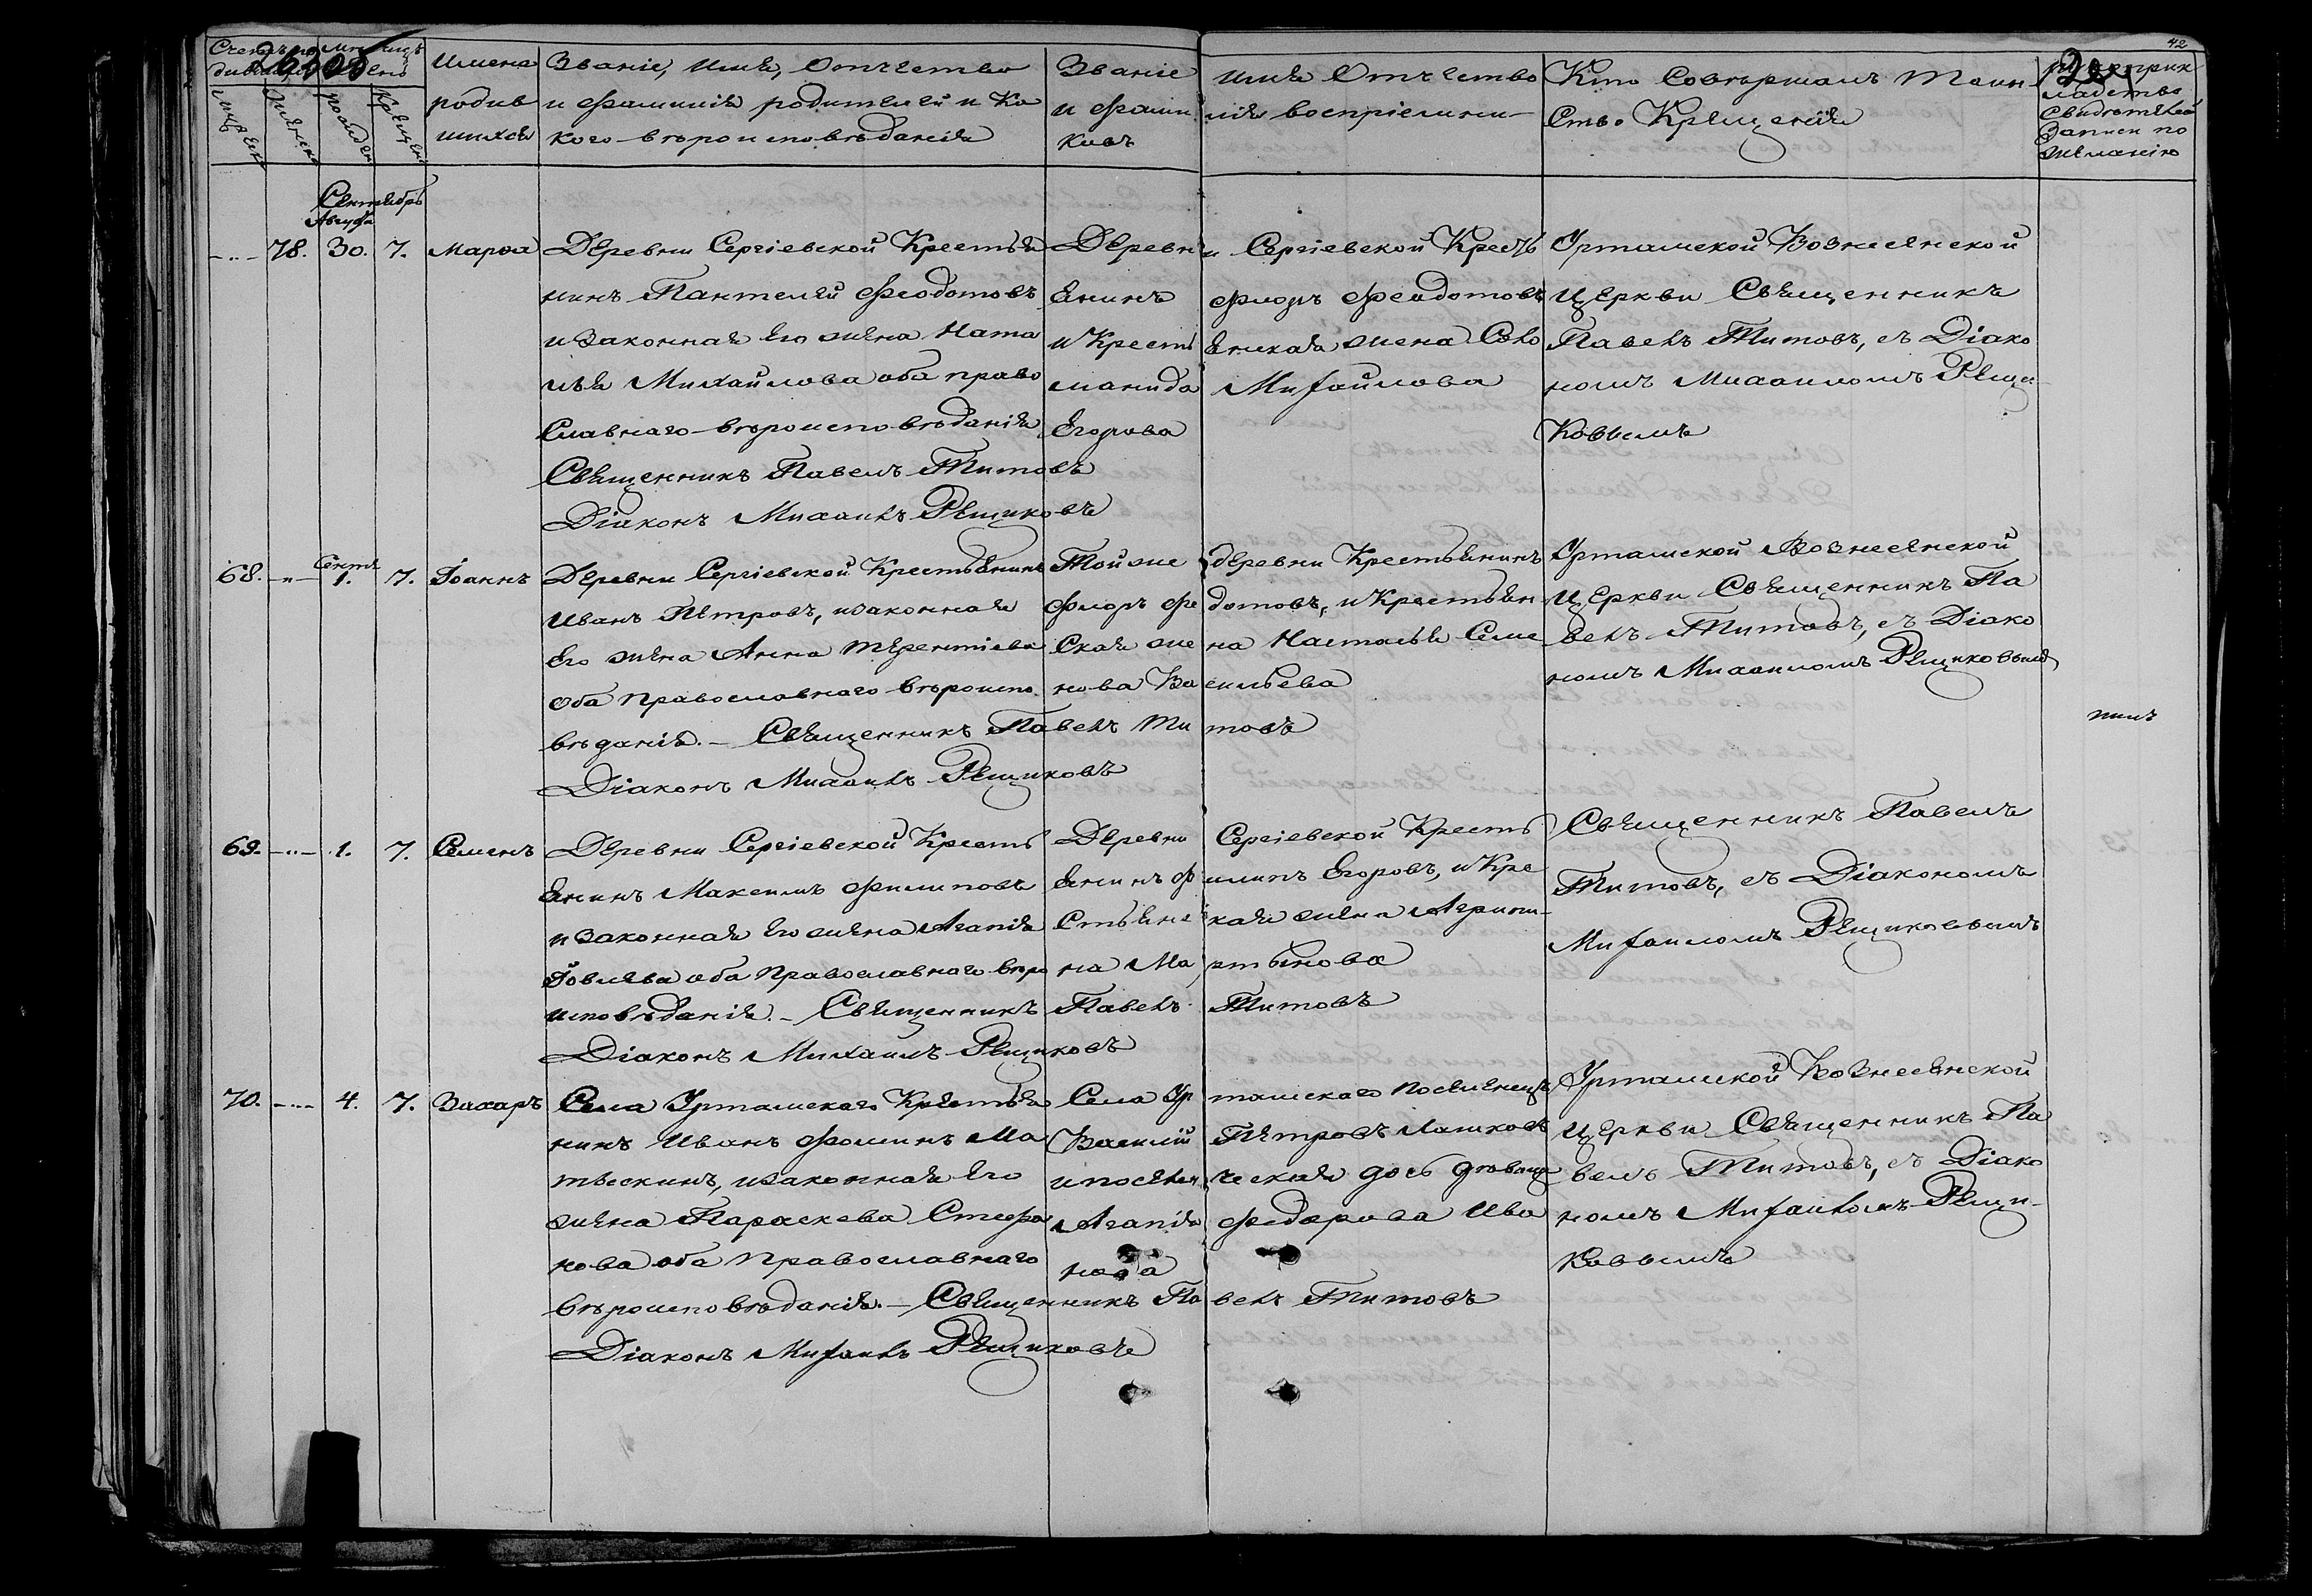 42
Имена родив шихся
Званіе, Имя, Отчество и фамилія родителей и Ка кого вѣроисповѣданія
Званіе Имя Отчество и фамилія воспріемни ковъ
Кто Совершалъ Таин Ство Крещенія
свидѣтелей Записи по желанію
Сентябрь
Августа
78. 30. 7. Марѳа
Деревни Сергіевской Крестья
нинъ Пантелей Феодотовъ
и законная Его жена Ната
лья Михайлова оба право
Славнаго вѣроисповѣданія
Деревни Сергіевской Кресть
янинъ Флоръ Феодотовъ
и Кресть янская жена Соло
манида Михайлова
Егорова
Уртамской Вознесенской
Церкви Священникъ
Павелъ Титовъ, съ Діако
номъ Михаиломъ Рещи
Ковымъ
Священникъ Павелъ Титовъ
Діаконъ Михаилъ Рещиковъ
Сент.
68. 1. 7. Іоаннъ
Деревни Сергіевской Крестьянинъ
Иванъ Петровъ, и законная
Его жена Анна Терентіева
оба Православнаго вѣроиспо
вѣданія. – Священникъ Павелъ Титовъ
Діаконъ Михаилъ Рещиковъ
Той же деревни Крестьянинъ
Флоръ Фе дотовъ, и Крестьян
Ская же на Наталья Семе
нова Ва сильева
Уртамской Вознесенской
Церкви Священникъ Па
велъ Титовъ, съ Діако
номъ Михаиломъ Рещиковымъ
69. 1. 7. Семенъ
Деревни Сергіевской Кресть
янинъ Максимъ Филиповъ
и законная Его жена Агапія
Іовлева оба Православнаго вѣро
исповѣданія. – Священникъ Павелъ Титовъ
Діаконъ Михаилъ Рещиковъ
Деревни Сергіевской Кресть
янинъ Ф илипъ Егоровъ, и Кре
стьянс кая жена Агрипи
на Ма ртынова
Священникъ Павелъ
Титовъ, съ Діакономъ
Михаиломъ Рещиковымъ
70. 4. 7. Захаръ
Села Уртамскаго Крестья
нинъ Иванъ Фоминъ Ма
тескинъ, и законная Его
жена Параскева Стефа
нова оба Православнаго
вѣроисповѣданія. – Священникъ Павелъ Титовъ
Діаконъ Михаилъ Рещиковъ
Села Ур тамскаго Поселенецъ
Василій Петровъ Лашковъ
и поселен ческая дочь
Агапія Федорова Ива
нова
Уртамской Вознесенской
Церкви Священникъ Па
велъ Титовъ, съ Діако
номъ Михаиломъ Рещи
Ковымъ